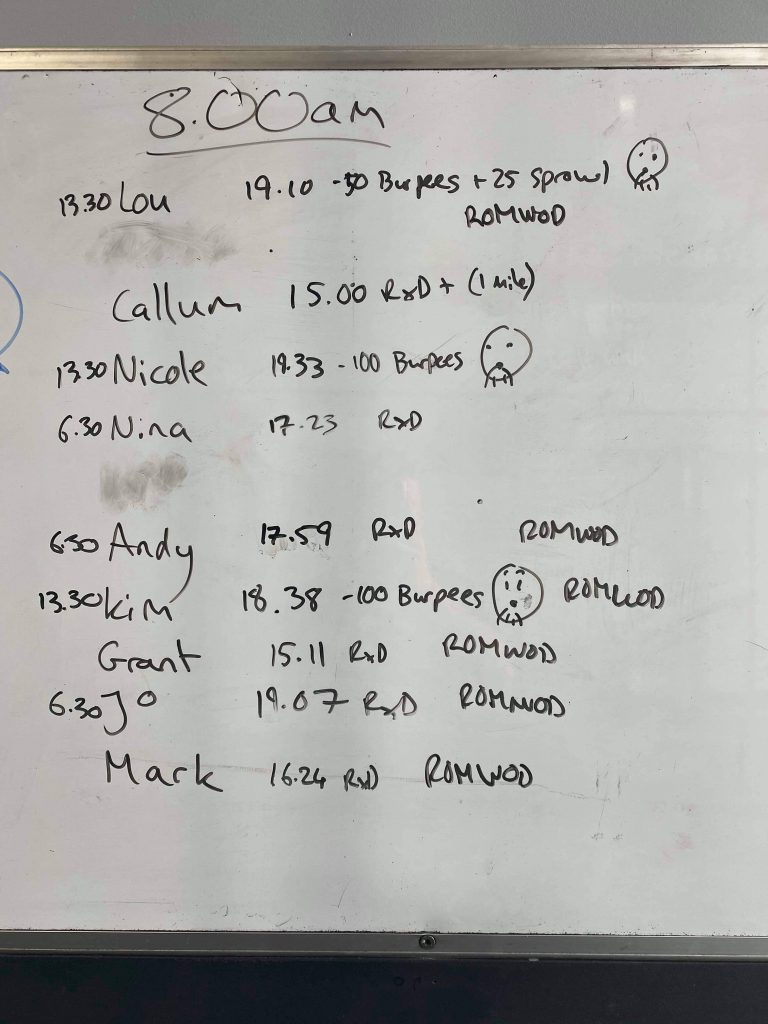 8.00am
13.30 Lou 19.10 -50 Burpees + 25 sprawl
ROMWOD
Callum 15.00 RxD + (1 Mile)
13.30 Nicole 19.33 -100 Burpees
6.30 Nina 17.23 RxD
6.30 Andy 17.59 RxD ROMWOD
13.30 Kim 18.38 -100 Burpees ROMWOD
Grant 15.11 RxD ROMWOD
6.30 Jo 19.07 RxD ROMWOD
Mark 16.24 RxD ROMWOD